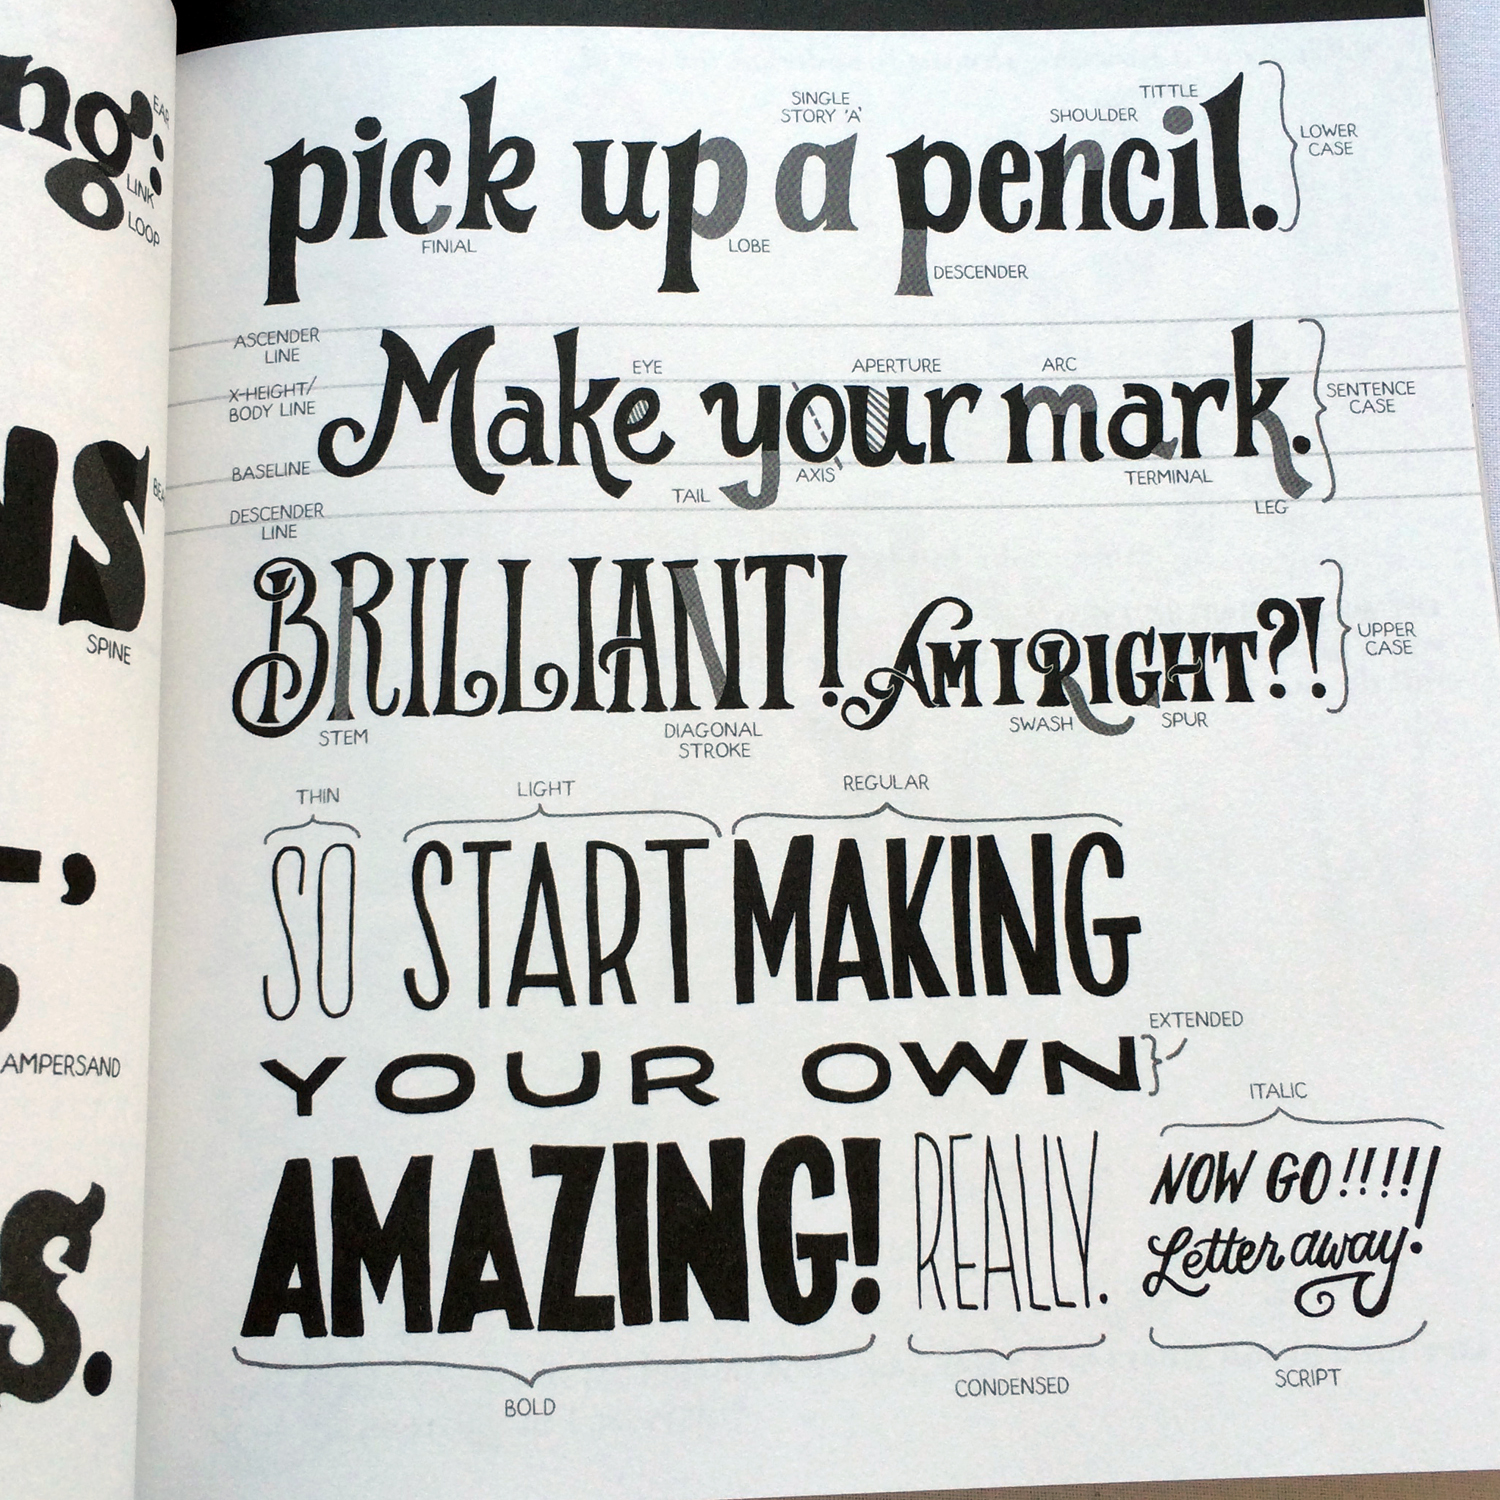 ng!
EAR
LINK
LOOP
SPINE
AMPERSAND
S.
SINGLE
STORY 'A'
SHOULDER
TITTLE
pick up a pencil.
LOWER
CASE
FINIAL
LOBE
DESCENDER
ASCENDER
LINE
X-HEIGHT/
BODY LINE
BASELINE
DESCENDER
LINE
EYE
APERTURE
ARC
Make your mark.
SENTENCE
CASE
TAIL
AXIS
TERMINAL
LEG
BRILLIANT! AM I RIGHT?!
UPPER
CASE
STEM
DIAGONAL
STROKE
SWASH
SPUR
THIN
LIGHT
REGULAR
SO START MAKING
EXTENDED
YOUR OWN
ITALIC
AMAZING! REALLY.
NOW GO!!!!!
Letter away!
BOLD
CONDENSED
SCRIPT